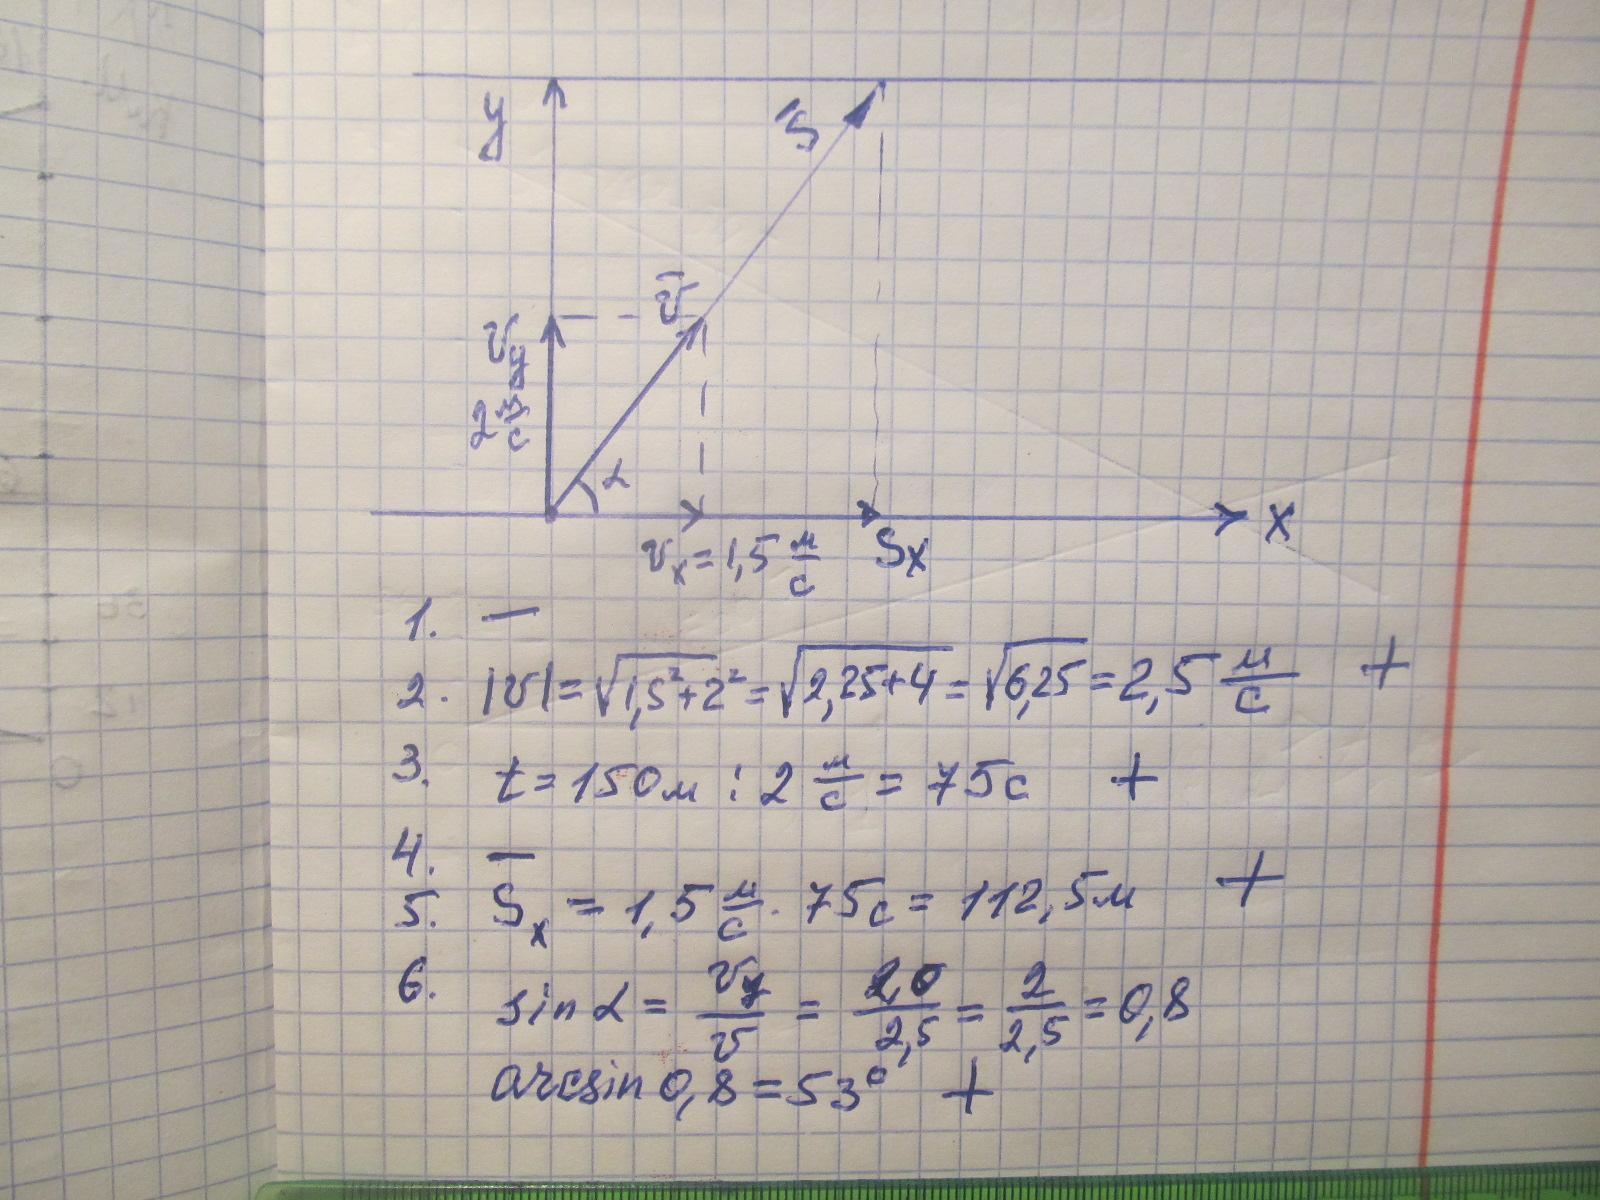 y
S̄
v̄
vy
2 м/с
α
vx = 1,5 м/с
Sx
x
1. —
2. |v| = √1,5² + 2² = √2,25+4 = √6,25 = 2,5 м/с +
3. t = 150м : 2 м/с = 75с +
4. —
5. Sx = 1,5 м/с · 75с = 112,5м +
6. sin α = vy/v = 2,0/2,5 = 2/2,5 = 0,8
arcsin 0,8 = 53° +